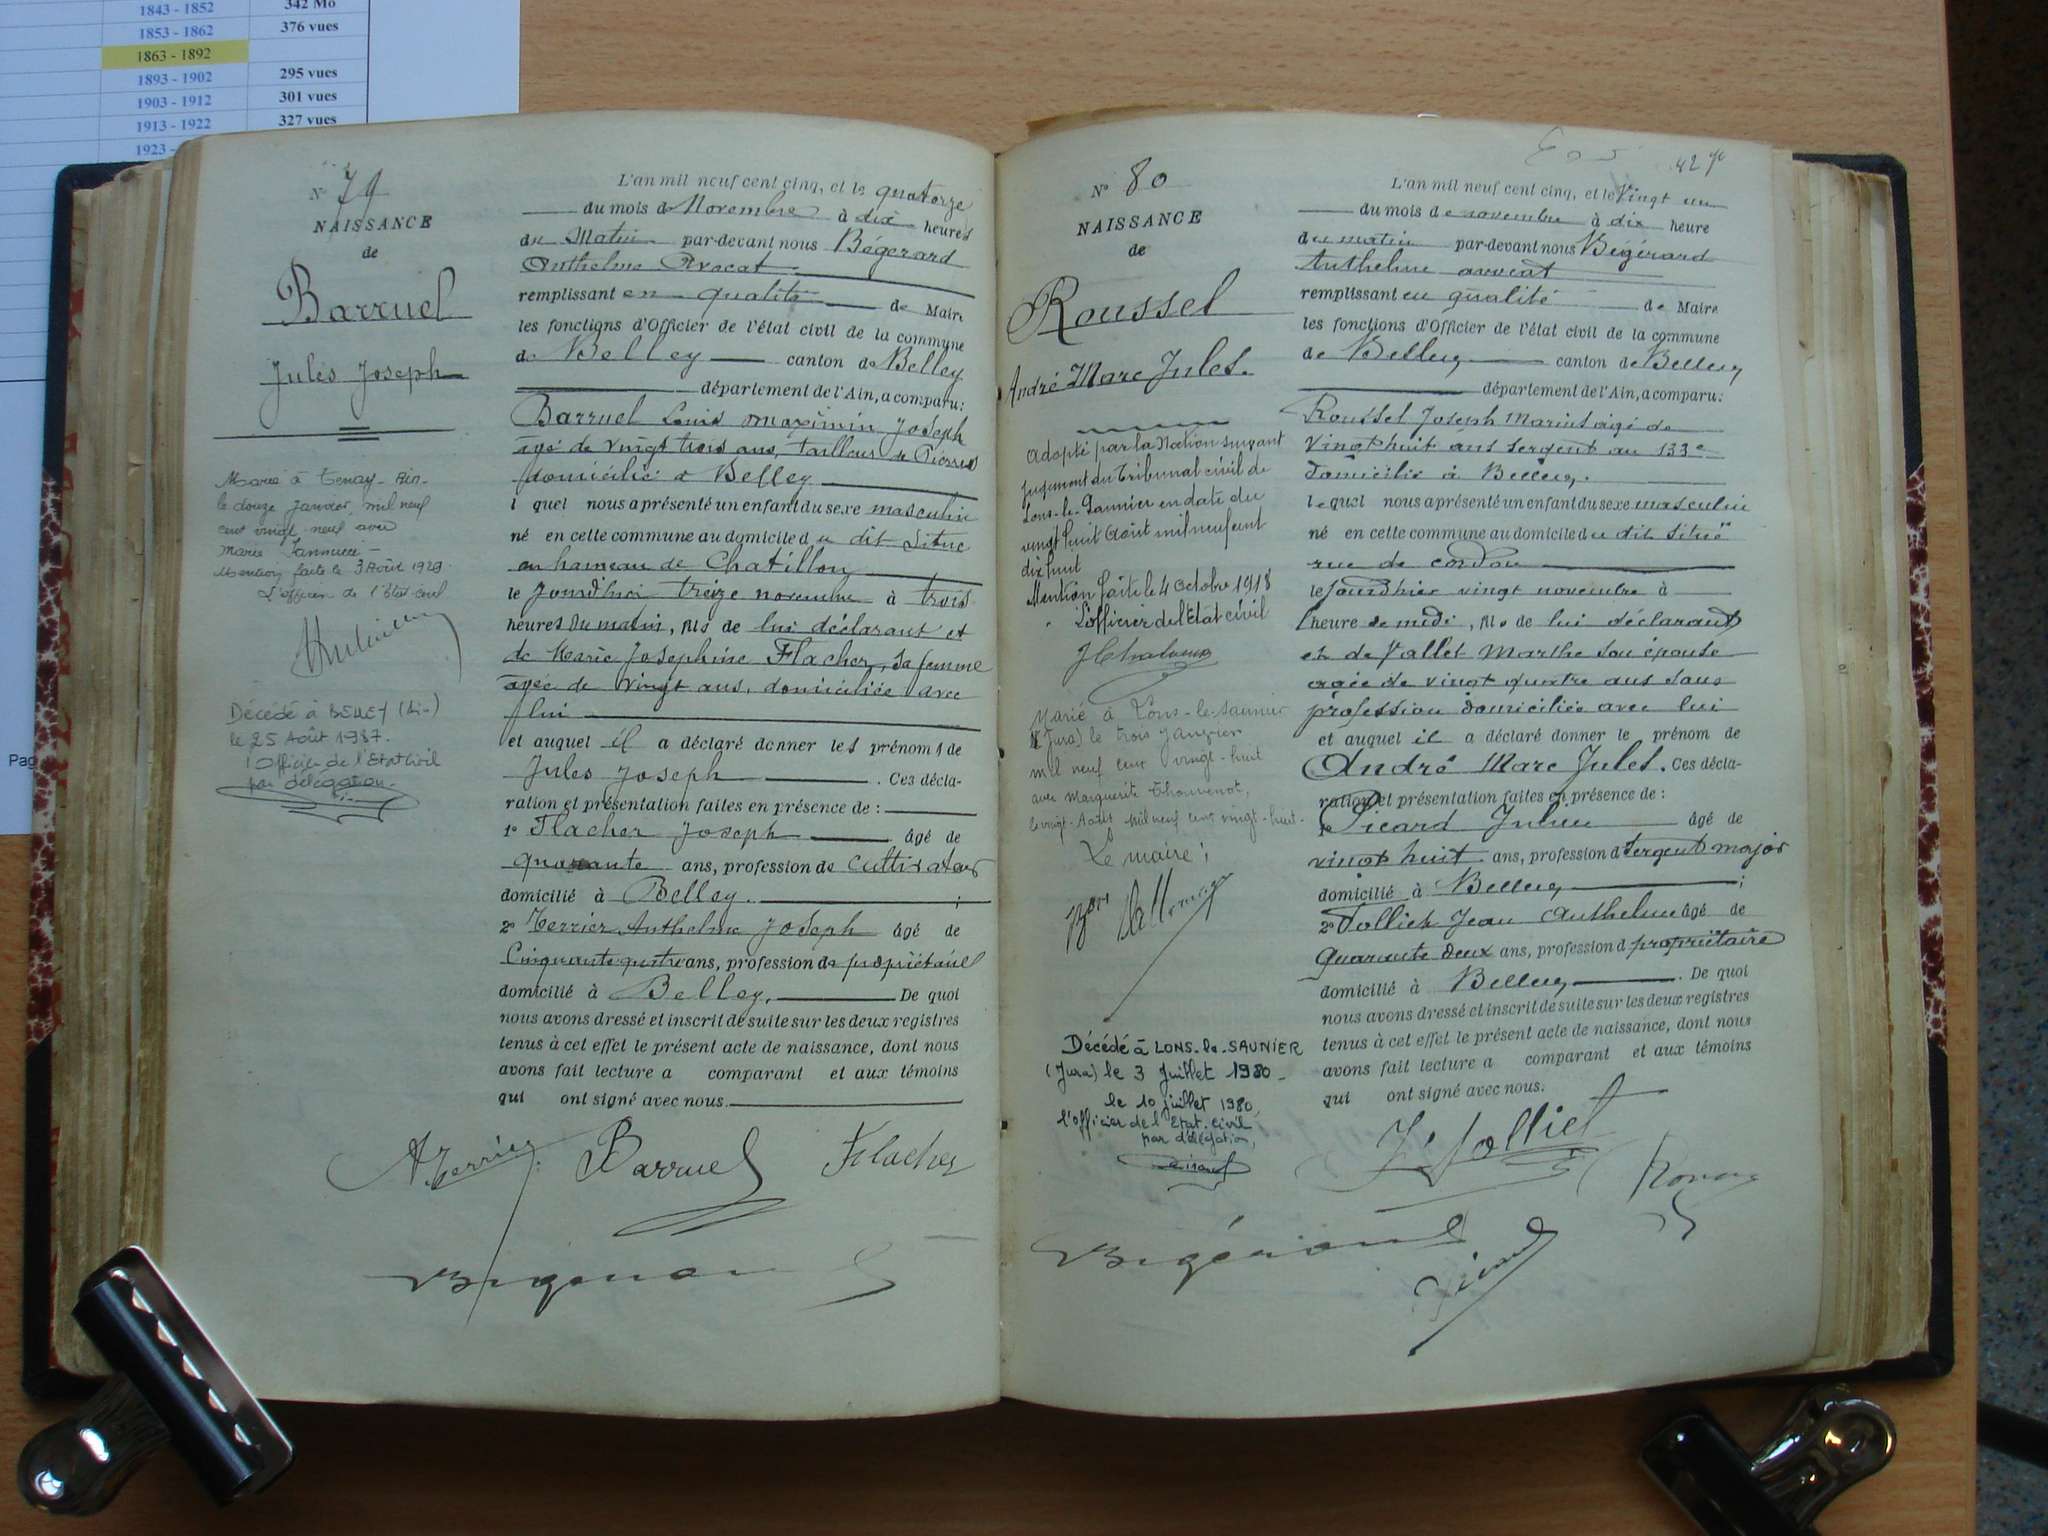 1843 - 1852 342 Mo
1853 - 1862 376 vues
1863 - 1892
1893 - 1902 295 vues
1903 - 1912 301 vues
1913 - 1922 327 vues
1923 -
Pag
N° 79
NAISSANCE
de
Barruel
Jules Joseph
Marié à Tenay - Ain -
le douze Janvier, mil neuf
cent vingt neuf avec
Marie
Mention faite le 3 Août 1929.
L'officier de l'Etat-civil
Décédé à BELLEY (Ain)
le 25 Août 1987.
l'Officier de l'Etat Civil
par délégation.
L'an mil neuf cent cinq, et le quatorze
du mois de Novembre à dix heures
du Matin par-devant nous Bégerard
Anthelme Avocat
remplissant en qualité de Maire
les fonctions d'Officier de l'état civil de la commune
de Belley canton de Belley
département de l'Ain, a comparu:
Barruel Louis Maximin Joseph
âgé de vingt trois ans, tailleur de Pierres
domicilié à Belley
lequel nous a présenté un enfant du sexe masculin
né en cette commune au domicile du dit Situé
au hameau de Chatillon
le Jourd'hui treize novembre à trois
heures du matin, fils de lui déclarant et
de Marie Josephine Flacher, sa femme
agée de vingt ans, domiciliée avec
lui
et auquel il a déclaré donner les prénoms de
Jules Joseph. Ces décla-
ration et présentation faites en présence de :
1° Flacher Joseph âgé de
quarante ans, profession de cultivateur
domicilié à Belley. ;
2° Terrier Anthelme Joseph âgé de
Cinquante quatre ans, profession de propriétaire
domicilié à Belley. De quoi
nous avons dressé et inscrit de suite sur les deux registres
tenus à cet effet le présent acte de naissance, dont nous
avons fait lecture a comparant et aux témoins
qui ont signé avec nous.
A. Terrier Barruel Flacher
Bégerard
427
N° 80
NAISSANCE
de
Roussel
André Marc Jules.
Adopté par la Nation suivant
jugement du Tribunal civil de
Lons-le-Saunier en date du
vingt huit Août mil neuf cent
dix huit
Mention faite le 4 octobre 1918
L'officier de l'Etat civil
Marié à Lons-le-Saunier
(Jura) le trois Janvier
mil neuf cent vingt-huit
avec Marguerite Thouvenot,
le vingt-Août mil neuf cent vingt-huit.
Le maire;
Décédé à LONS-le-SAUNIER
(Jura) le 3 Juillet 1980 -
le 10 juillet 1980,
l'officier de l'Etat civil
par délégation,
L'an mil neuf cent cinq, et le Vingt un
du mois de novembre à dix heure
du matin par-devant nous Bégérard
Anthelme avocat
remplissant en qualité de Maire
les fonctions d'Officier de l'état civil de la commune
de Belley canton de Belley
département de l'Ain, a comparu:
Roussel Joseph Marius agé de
vingt huit ans sergent au 133e
domicilié à Belley.
lequel nous a présenté un enfant du sexe masculin
né en cette commune au domicile du dit situé
rue de cordon
le Jourd'hier vingt novembre à
heure de midi, fils de lui déclarant
et de Vallet Marthe son épouse
agée de vingt quatre ans sans
profession domiciliée avec lui
et auquel il a déclaré donner le prénom de
André Marc Jules. Ces décla-
ration et présentation faites en présence de :
1° Picard Julien âgé de
vingt huit ans, profession d Sergent major
domicilié à Belley ;
2° Jolliet Jean Anthelme âgé de
quarante deux ans, profession d propriétaire
domicilié à Belley. De quoi
nous avons dressé et inscrit de suite sur les deux registres
tenus à cet effet le présent acte de naissance, dont nous
avons fait lecture a comparant et aux témoins
qui ont signé avec nous.
J. Jolliet
Bégérard